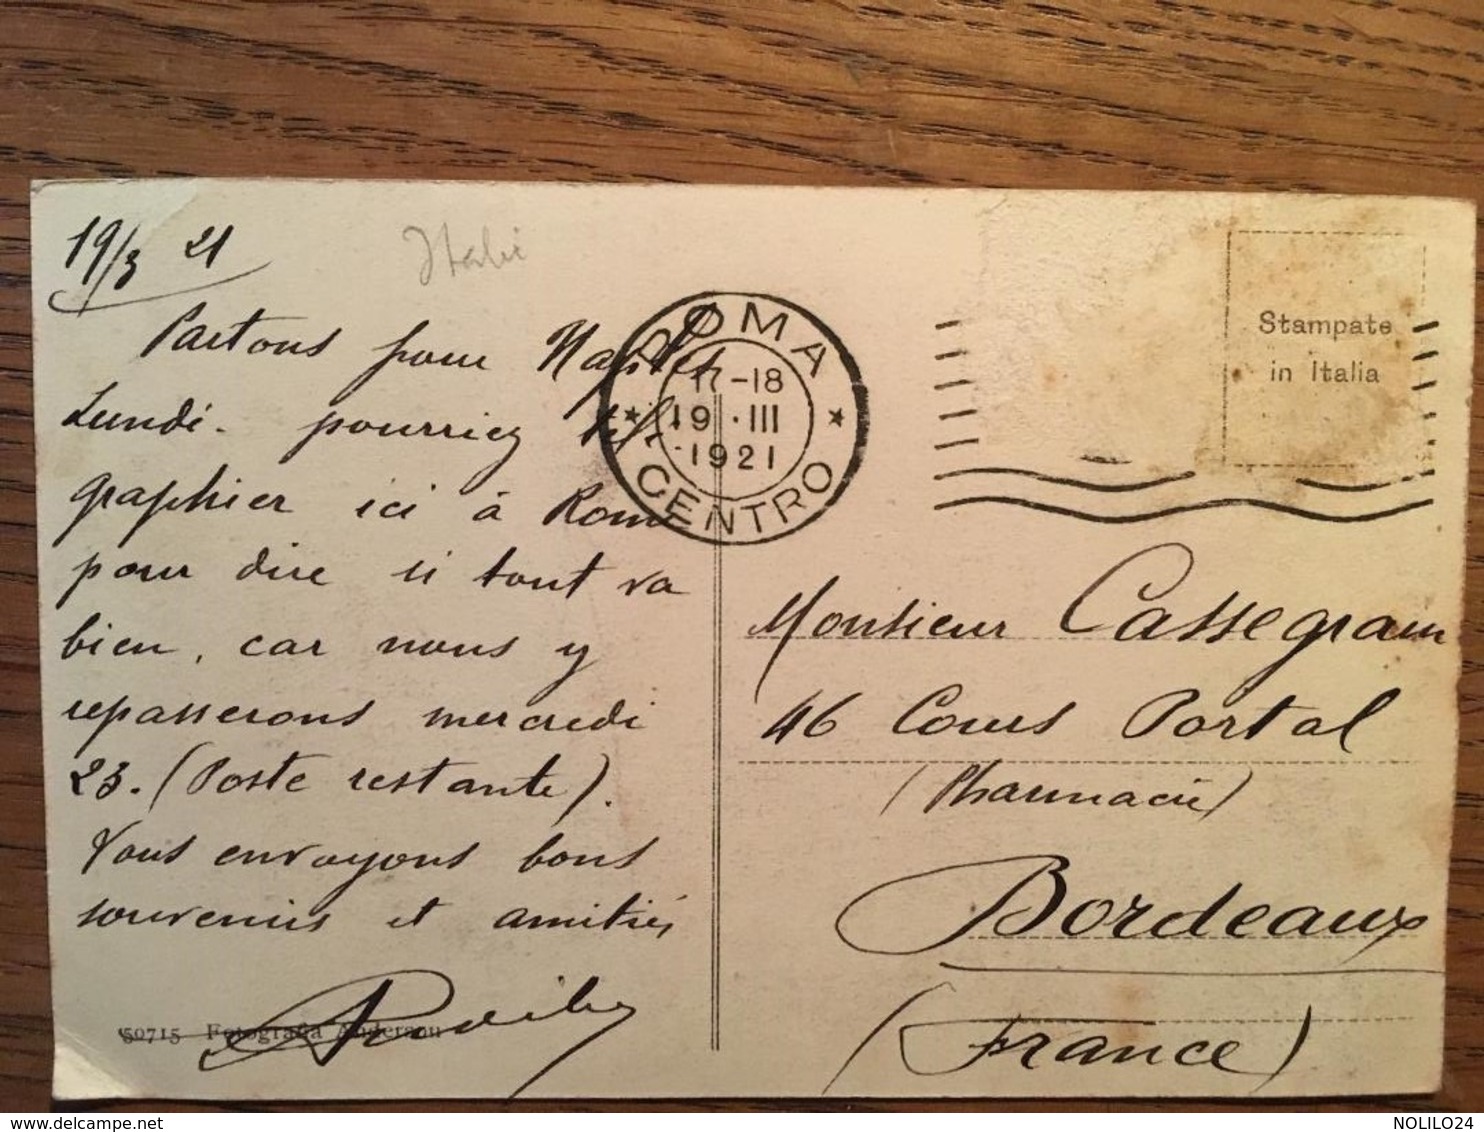 19/3 21
Italie
Partons pour Naples
Lundi. pourriez tél
graphier ici à Rome
pour dire si tout va
bien, car nous y
repasserons mercredi
23. (Poste restante).
Vous envoyons bons
souvenirs et amitiés
50715 Fotografia Anderson
ROMA
CENTRO
17-18
19·III
1921
Stampate
in Italia
Monsieur Cassegrain
46 Cours Portal
(Pharmacie)
Bordeaux
(France)
delcampe.net
NOLILO24